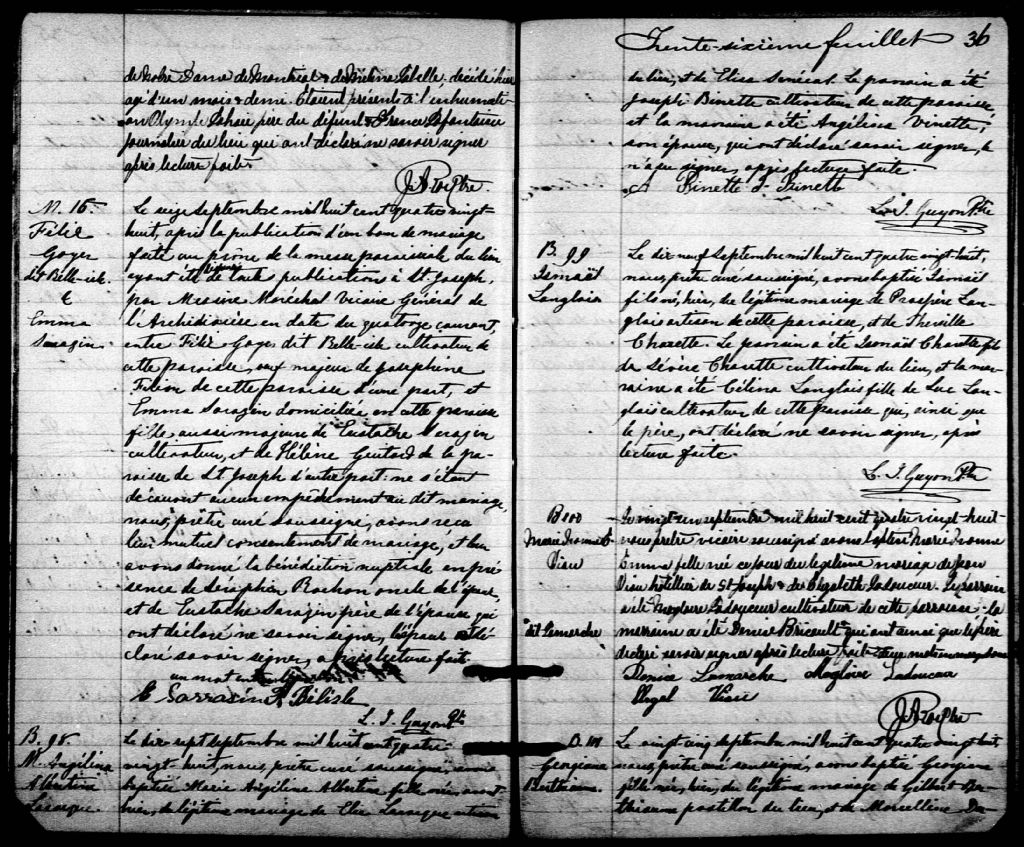 de Notre Dame de Montréal & de Mélina Labelle, décédé hier
agé d'un mois & demi. Étaient présents à l'inhumati-
on Olympe père du défunt &
journalier du lieu qui ont déclaré ne savoir signer
après lecture faite.
Ptre.
M. 16.
Félix
Goyer
dit Belle-isle.
&
Emma
Sarazin.
Le seize septembre mil huit cent quatre vingt-
huit, après la publication d'un banc de mariage
faite au prône de la messe paroissiale du lieu
ayant été de toute publications à St Joseph,
par Messire Maréchal Vicaire Général de
l'Archidiocèse en date du quatorze courant,
entre Félix Goyer dit Belle-isle cultivateur de
cette paroisse, veuf majeur de Josephine
Filion de cette paroisse d'une part, et
Emma Sarazin domiciliée en cette paroisse
fille aussi majeure de Eustache Sarazin
cultivateur, et de Hélène Guitard de la pa-
roisse de St Joseph d'autre part: ne s'étant
découvert aucun empêchement au dit mariage,
nous, prêtre curé soussigné, avons reçu
leur mutuel consentement de mariage, et leur
avons donné la bénédiction nuptiale en pré-
sence de Séraphin Rochon oncle de l'époux,
et de Eustache Sarazin père de l'épouse qui
ont déclaré ne savoir signer, l'époux a dé-
claré savoir signer, après lecture faite
un mot
E Sarrasin Bélisle
L. J. Guyon Ptre
B. 98.
M. Angélina
Albertina
Laroque
Le dix-sept septembre mil huit cent quatre-
vingt huit, nous, prêtre curé soussigné, avons
baptisé Marie Angélina Albertina fille née, avant
hier, du légitime mariage de Elie artisan
Trente-sixième feuillet 36
du lieu, et de Elisa Sénécal. Le parrain a été
Joseph Binette cultivateur de cette paroisse
et la marraine a été Angélina Binette,
son épouse, qui ont déclaré savoir signer, le
n'a pu signer, après lecture faite.
A Binette J. Binette
L. J. Guyon Ptre
B. 99
Ismaël
Langlois
Le dix neuf septembre mil huit cent quatre vingt huit,
nous, prêtre curé soussigné, avons baptisé Ismaël
fils né, hier, du légitime mariage de Prospère Lan-
glois artisan de cette paroisse, et de
Charette. Le parrain a été Ismaël Charette fils
de Sévère Charette cultivateur du lieu, et la mar-
raine a été Célina Langlois fille de Luc Lan-
glois cultivateur de cette paroisse qui, ainsi que
le père, ont déclaré ne savoir signer, après
lecture faite.
L. J. Guyon Ptre
B 100
Marie Ivonne E
Viau
dit Lamarche
Le vingt-un septembre mil huit cent quatre vingt-huit
nous prêtre vicaire soussigné avons baptisé Marie Ivonne
Emma fille née ce jour du légitime mariage de
Viau hôtelier de St Joseph & de Elizabeth Ladouceur. Le parrain
a été Magloire Ladouceur cultivateur de cette paroisse - la
marraine a été Denise Bricault qui ont ainsi que le père
déclaré savoir signer après lecture faite
Denise Lamarche Magloire Ladouceur
Viau
Ptre
B. 101
Georgiana
Berthiaume
Le vingt-cinq septembre mil huit cent quatre vingt huit,
nous, prêtre curé soussigné, avons baptisé Georgiana
fille née, hier, du légitime mariage de Gilbert Ber-
thiaume postillon du lieu, et de Marcelline Du-